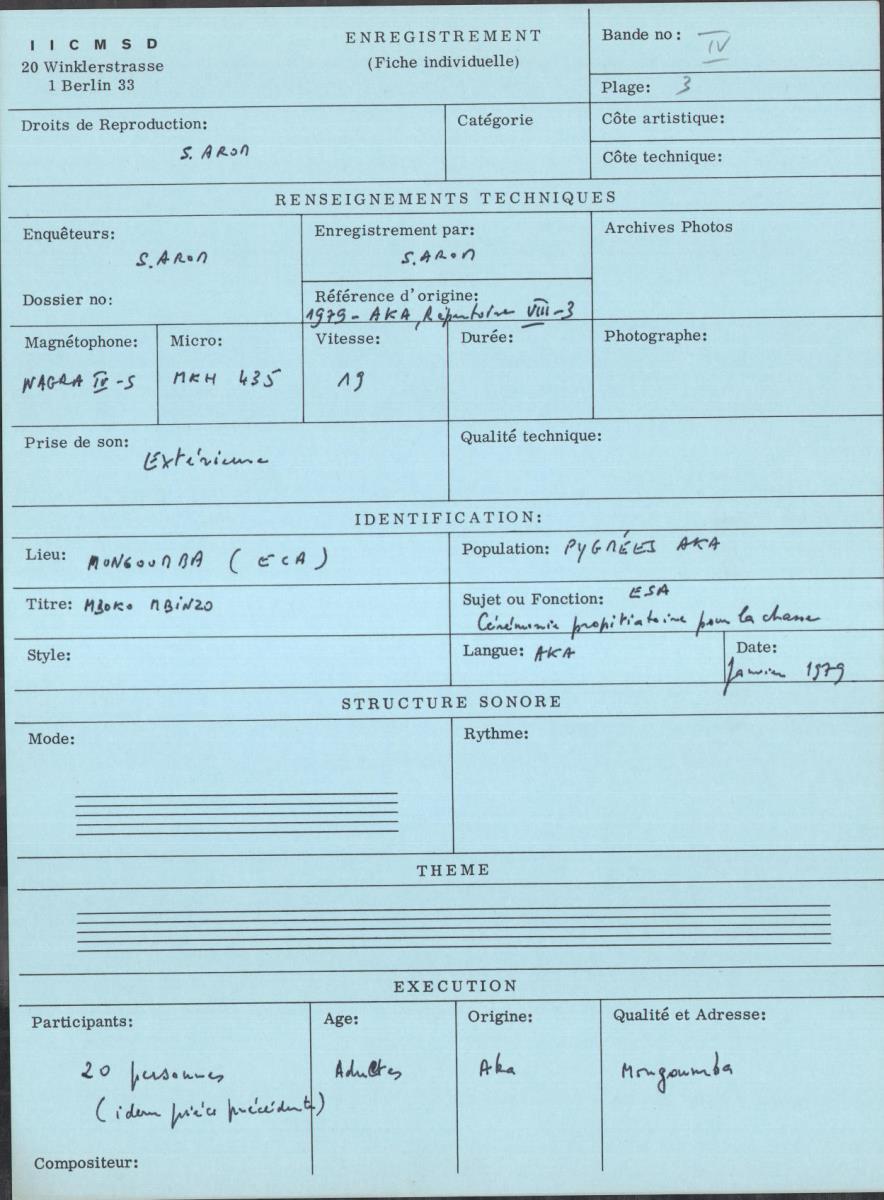 I I C M S D
20 Winklerstrasse
1 Berlin 33
ENREGISTREMENT
(Fiche individuelle)
Bande no: IV
Plage: 3
Droits de Reproduction:
S. AROM
Catégorie
Côte artistique:
Côte technique:
RENSEIGNEMENTS TECHNIQUES
Enquêteurs:
S. AROM
Dossier no:
Enregistrement par:
S. AROM
Référence d'origine:
1979 - AKA, Répertoire VIII-3
Archives Photos
Magnétophone:
NAGRA IV-S
Micro:
MKH 435
Vitesse:
19
Durée:
Photographe:
Prise de son:
Extérieure
Qualité technique:
IDENTIFICATION:
Lieu: MONGOUMBA (ECA)
Population: PYGMÉES AKA
Titre: MBOKO MBINZO
Sujet ou Fonction: ESA
Cérémonie propitiatoire pour la chasse
Style:
Langue: AKA
Date:
Janvier 1979
STRUCTURE SONORE
Mode:
Rythme:
THEME
EXECUTION
Participants:
20 personnes
(idem pièce précédente)
Age:
Adultes
Origine:
Aka
Qualité et Adresse:
Mongoumba
Compositeur: